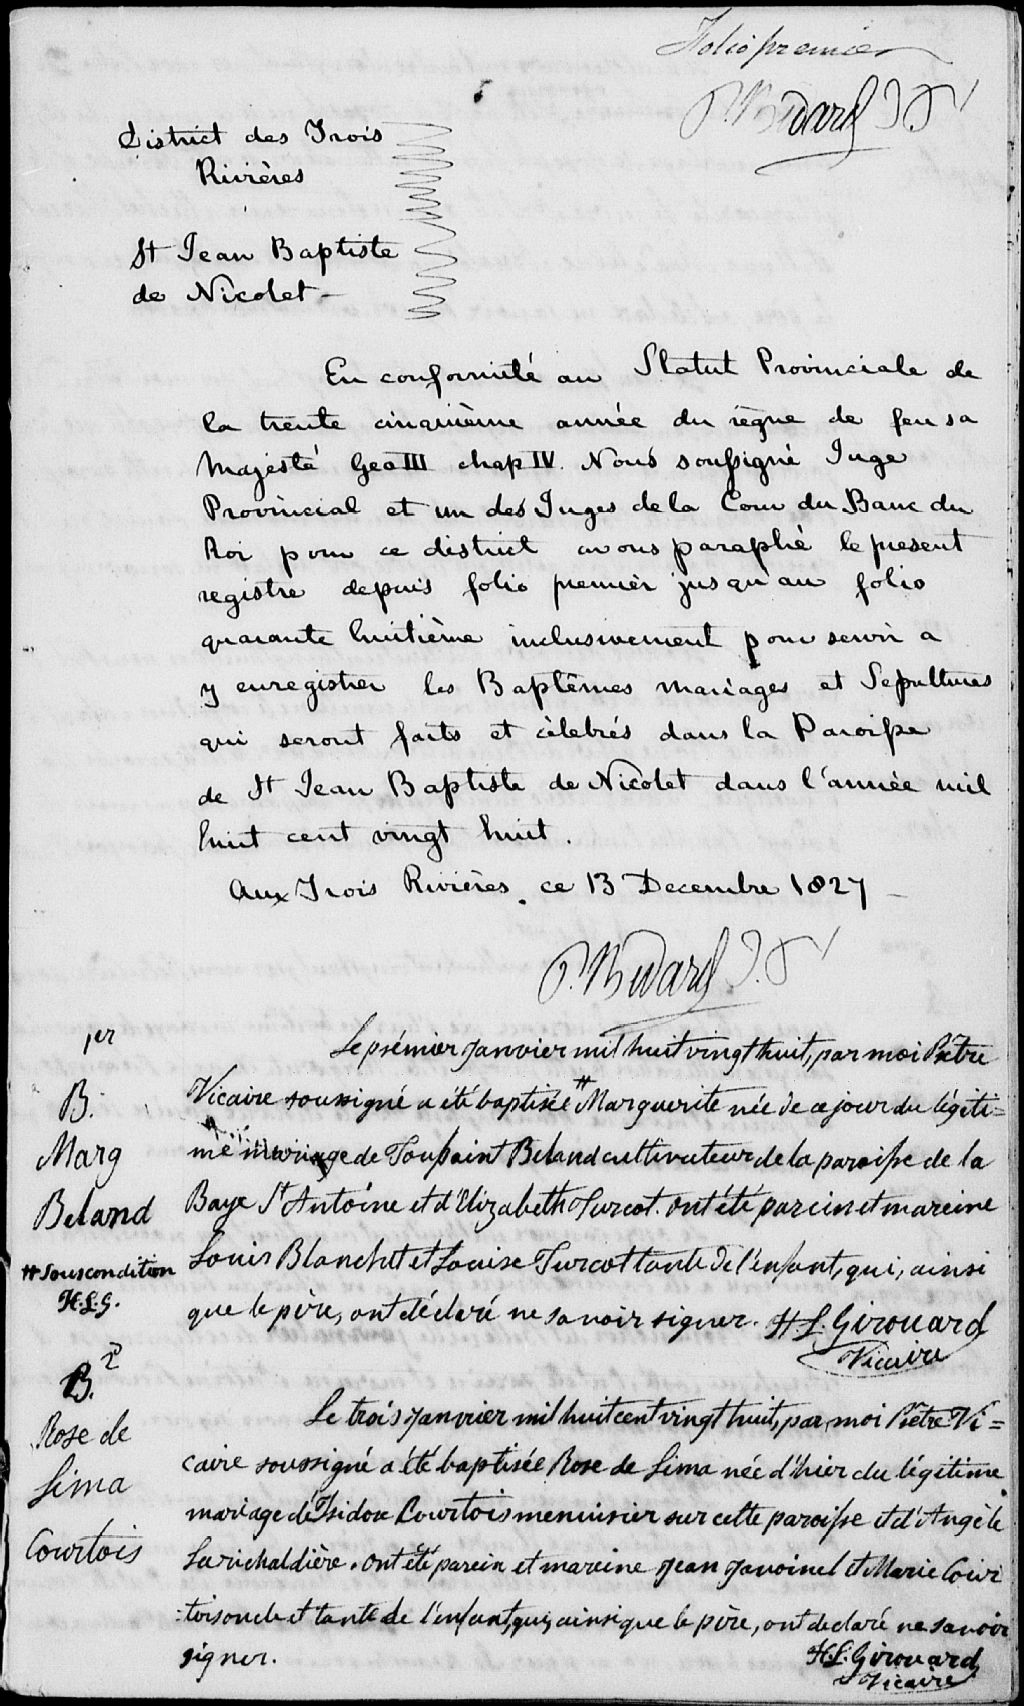 Folio premier
P. Bedard J P
District des Trois
Rivières
St Jean Baptiste
de Nicolet
En conformité au Statut Provinciale de
la trente cinquième année du règne de feu sa
Majesté Geo III chap IV. Nous soussigné Juge
Provincial et un des Juges de la Cour du Banc du
Roi pour ce district avons paraphé le present
registre depuis folio premier jusqu'au folio
quarante huitième inclusivement pour servir a
y enregistrer les Baptêmes mariages et Sepultures
qui seront faits et célebrés dans la Paroisse
de St Jean Baptiste de Nicolet dans l'année mil
huit cent vingt huit.
Aux Trois Rivières ce 13 Decembre 1827
P. Bedard J. P
1er
B.
Marg
Beland
# Sous condition
H.L.G.
Le prémier janvier mil huit vingt huit, par moi Prêtre
Vicaire soussigné a été baptisée # Marguerite née de ce jour du légiti=
me mariage de Toussaint Beland cultivateur de la paroisse de la
Baye St Antoine et d'Elizabeth Turcot. ont été parein et mareine
Louis Blanchet et Louise Turcot tante de l'enfant, qui, ainsi
que le père, ont déclaré ne savoir signer. H. L. Girouard
Vicaire
B. 2
Rose de
Lima
Courtois
Le trois janvier mil huit cent vingt huit, par moi Prêtre Vi=
caire soussigné a été baptisée Rose de Lima née d'hier du légitime
mariage d'Isidore Courtois menuisier sur cette paroisse et d'Angèle
ont été parein et mareine Jean et Marie Cour
=tois oncle et tante de l'enfant, qui, ainsi que le père, ont declaré ne savoir
signer.
H. L. Girouard
Vicaire